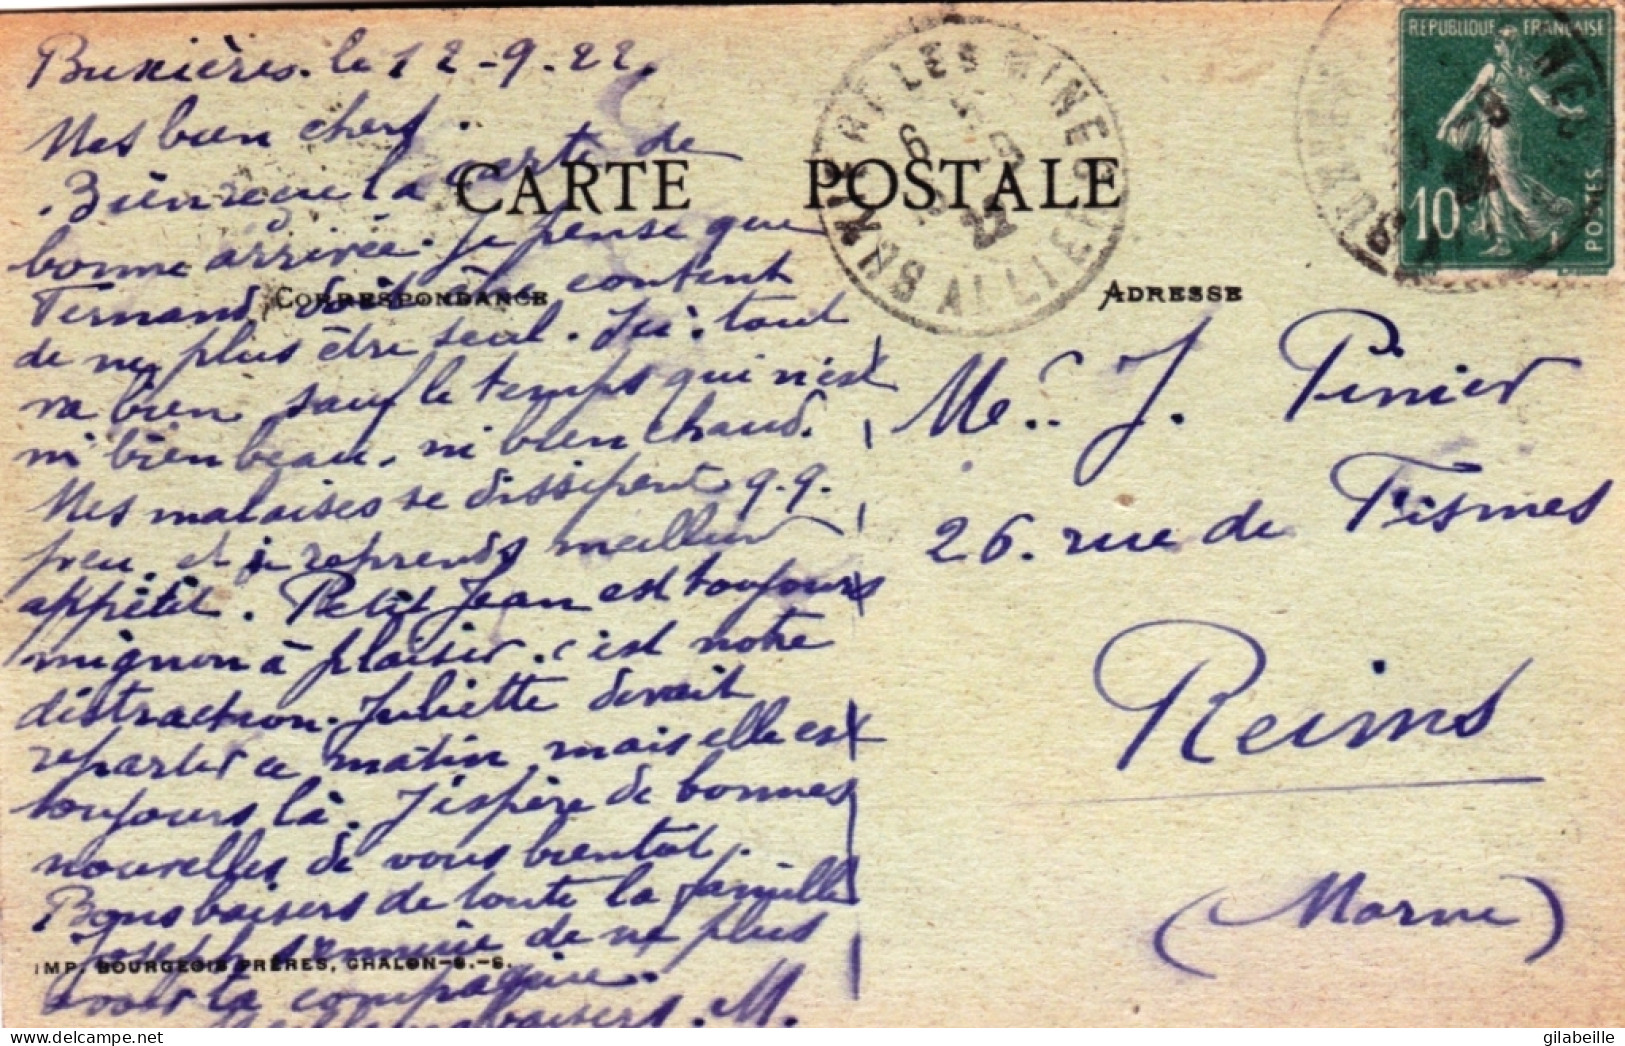 Buxières. le 12-9-22.
Mes bien chers.
Bien reçu la carte de
bonne arrivée. Je pense que
Fernand doit être content
de ne plus être seul. Ici tout
va bien sauf le temps qui n'est
ni bien beau, ni bien chaud.
Mes malaises se dissipent q.q.
peu, et je reprends meilleur
appétit. Petit Jean est toujours
mignon à plaisir. c'est notre
distraction. Juliette devait
repartir ce matin, mais elle est
toujours là. J'espère de bonnes
nouvelles de vous bientôt.
Bons baisers de toute la famille
Joseph s'ennuie de ne plus
avoir la compagnie.
baisers. M.
CARTE POSTALE
CORRESPONDANCE
ADRESSE
IMP. BOURGEOIS FRÈRES, CHALON-S.-S.
BUXIERES LES MINES
ALLIER
22
REPUBLIQUE FRANÇAISE
10
POSTES
Me.. J. Pinier
26. rue de Fismes
Reims
(Marne)
gilabeille